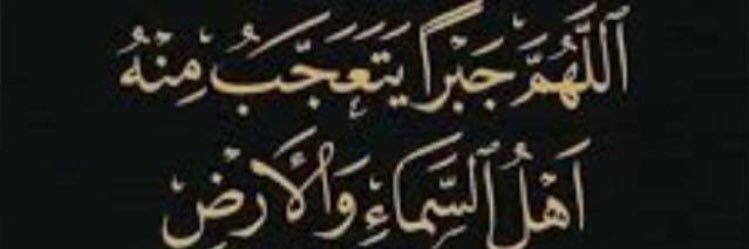 اَللَّهُمَّ جَبْراً يَتَعَجَّبُ مِنْهُ
اَهْلُ السَّمَاءِ وَالْأَرْضِ